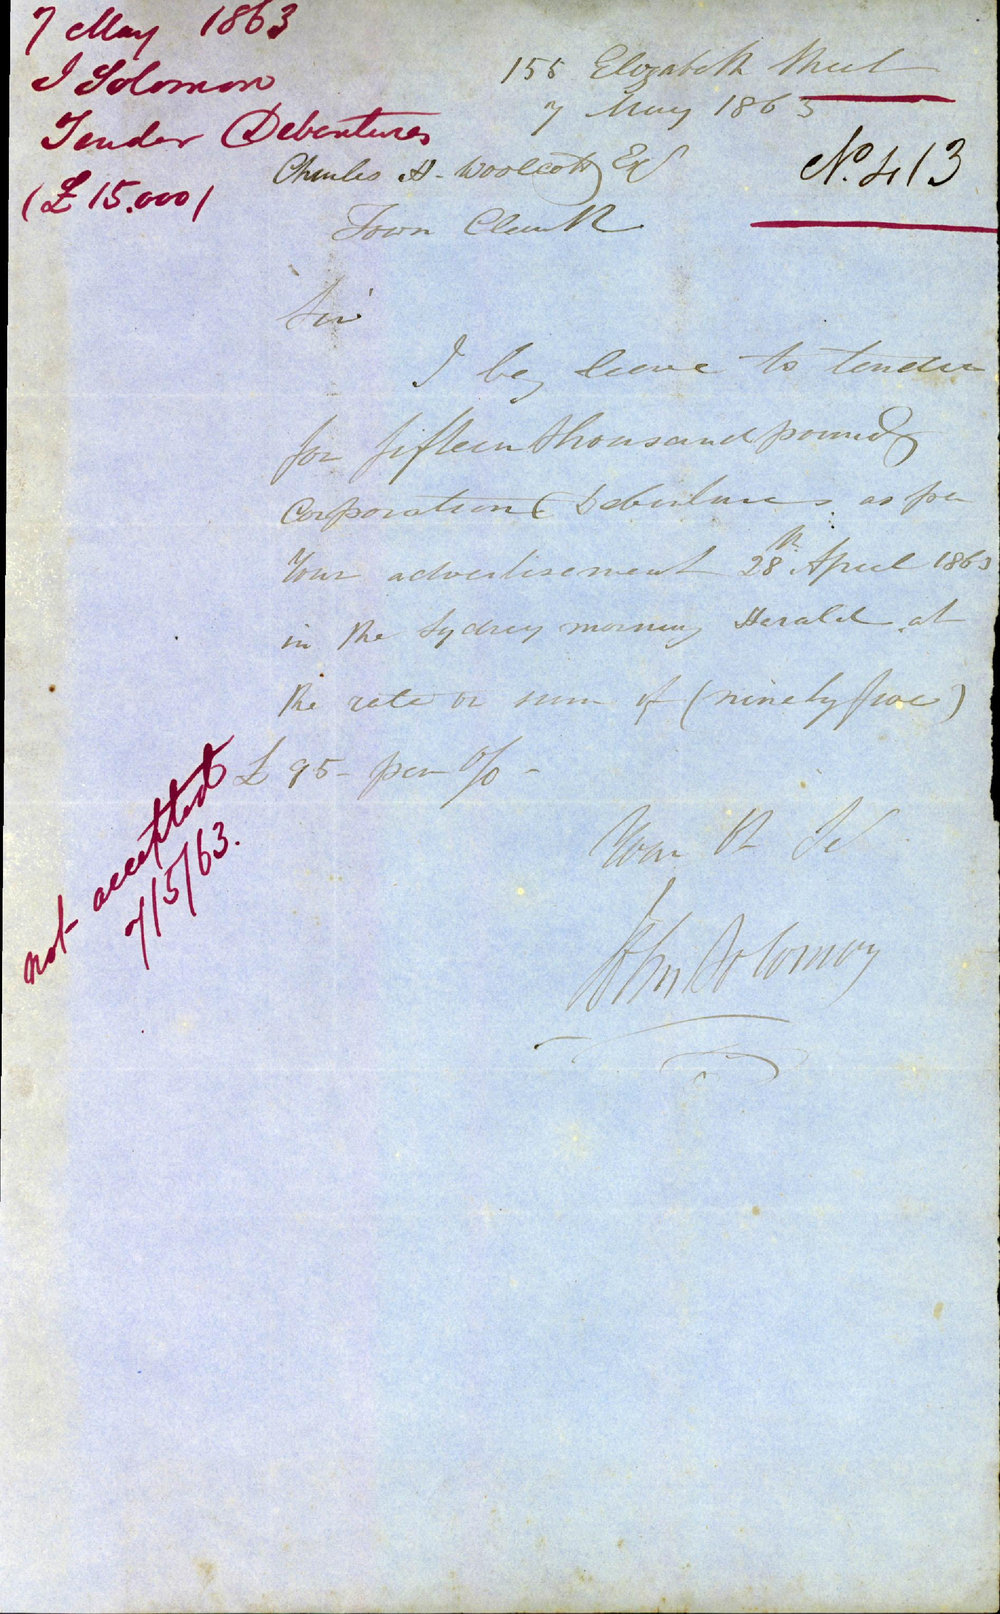 7 May 1863
J Solomon
Tender Debentures
(£15.000)
155 Elizabeth Street
7 May 1863
No. 413
Charles H. Woolcott Esq
Town Clerk
Sir
I beg leave to tender
for fifteen thousand pounds
Corporation Debentures as per
Your advertisement 28th April 1863
in the Sydney morning Herald at
the rate or sum of (ninety five)
£95 - per % -
not accepted
7/5/63.
John Solomon